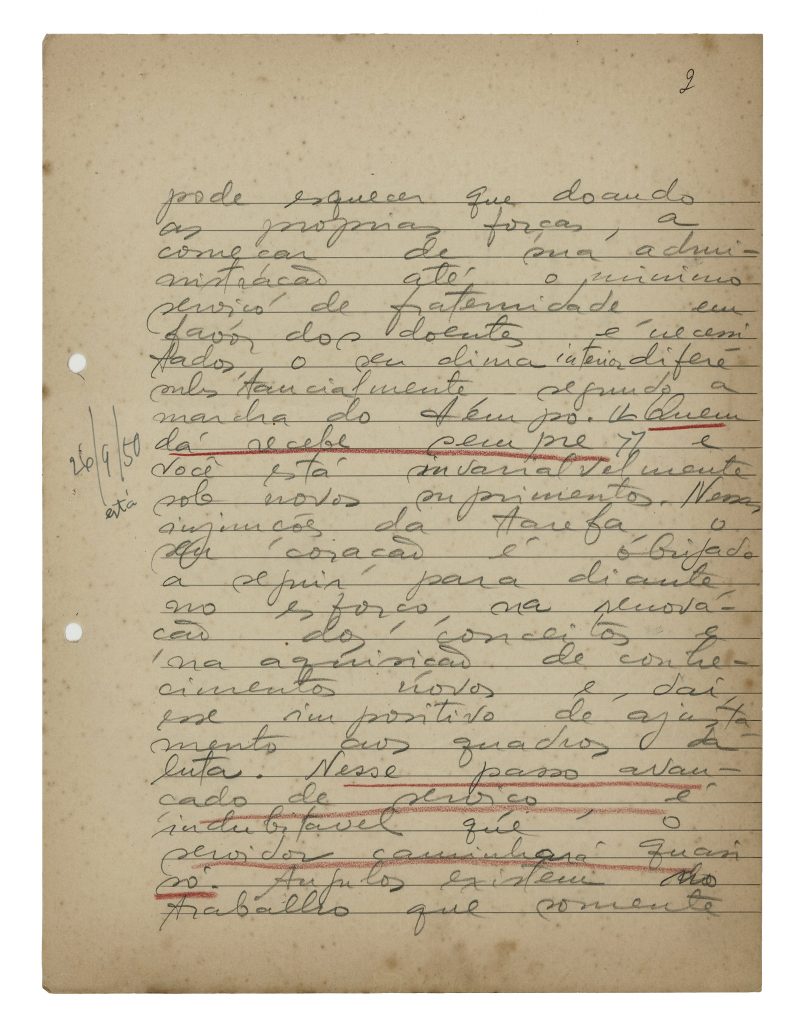 2
pode esquecer que doando
as proprias forças, a
começar de sua admi-
nistração até o minimo
serviço de fraternidade em
favor dos doentes e necessi
tados, o seu clima interior difere
substancialmente segundo a
marcha do tempo. "Quem
dá recebe sempre" e
26/9/50
você está invariavelmente
está
sob novos suprimentos. Nessas
injunções da tarefa o
seu coração é obrigado
a seguir para diante
no esforço, na renova-
ção dos conceitos e
na aquisição de conhe-
cimentos novos e, daí,
esse impositivo de ajusta-
mento aos quadros da
luta. Nesse passo avan-
çado de serviço, é
indubitavel que o
servidor caminhará quasi
só. Angulos existem no
trabalho que somente